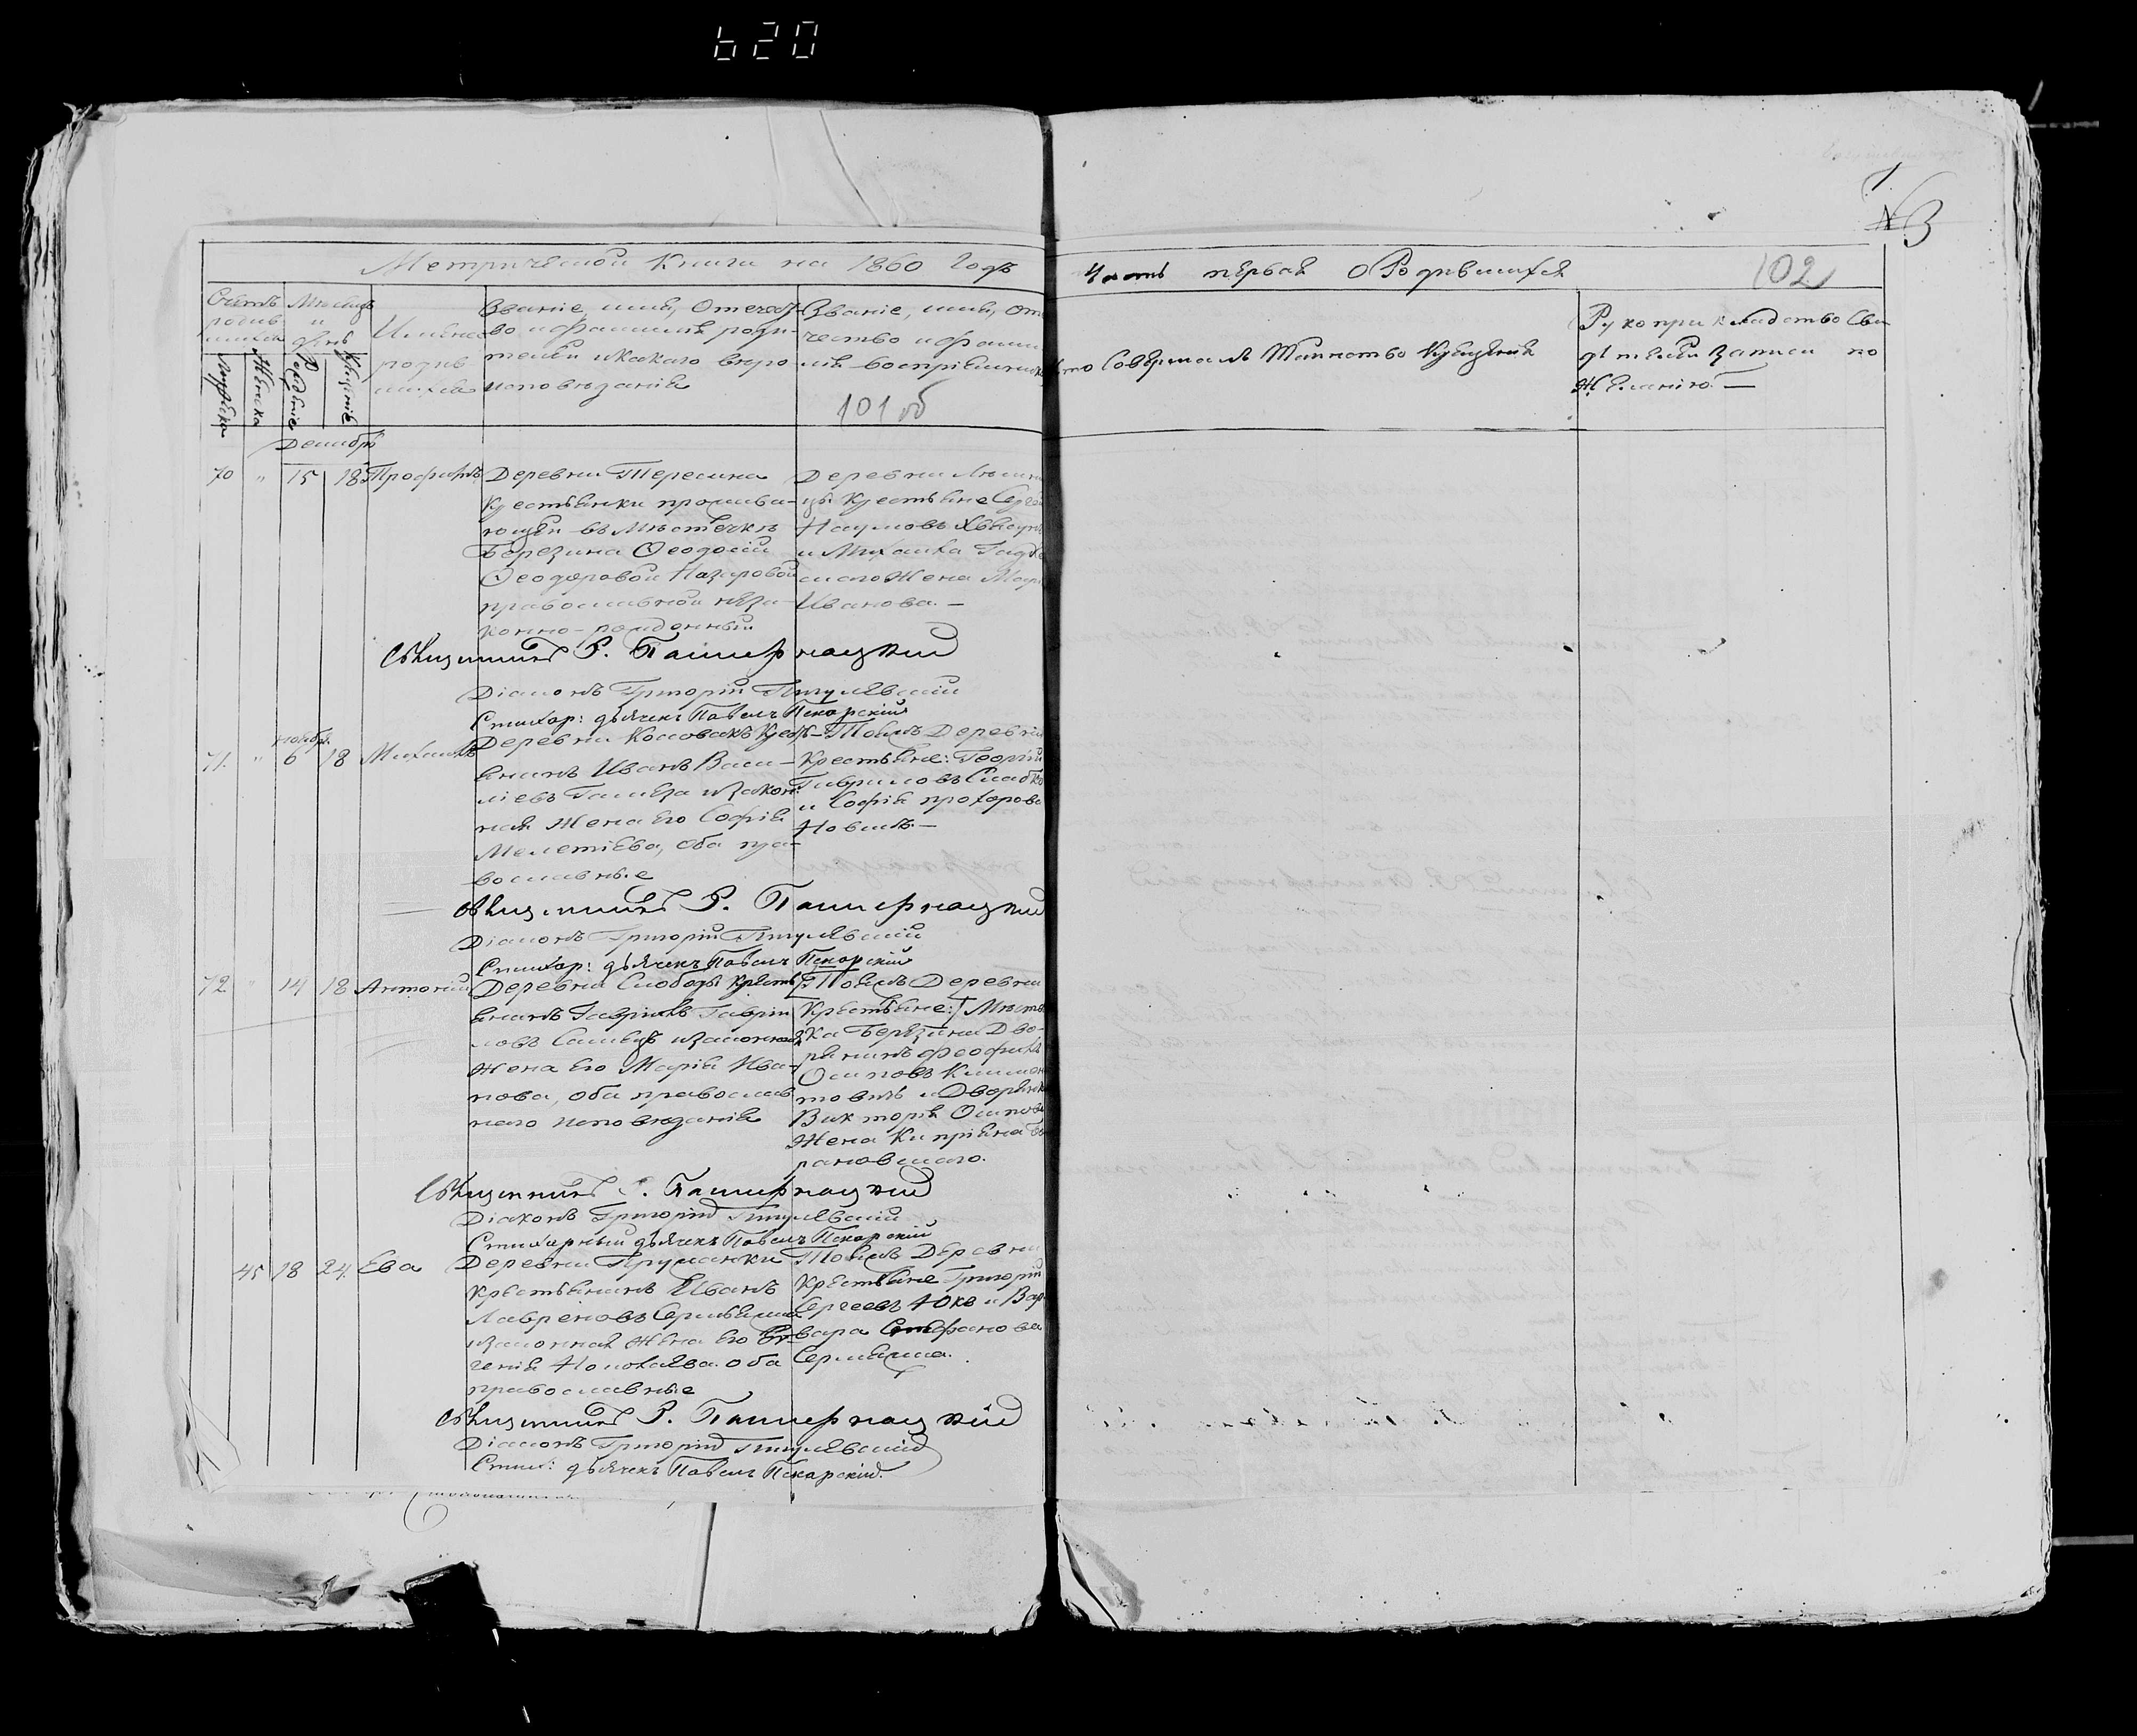 620
Метрической Книги на 1860 Годъ
Часть первая О Родившихся
102
№ 3
Счетъ родив шихся
Мѣсяцъ и день
Мужеска
Женска
Рожденіе
Крещеніе
Имена родив шихся
Званіе, имя, отечест-
во и фамилія роди-
телей и какого вѣро
исповѣданія
Званіе, имя, от
чество и фами
лія воспріемник
101 об
Кто совершалъ Таинство Крещенія
Рукоприкладство Сви
дѣтелей записи по
Желанію. —
Декабрь
70 " 15 18 Трофимъ
Деревни Тересина
Крестьянки прожива-
ющей въ Мѣстечкѣ
Березина Ѳеодосіи
Ѳеодоровой Назаровой
православной неза-
конно-рожденный
Деревни
цы Крестьяне Сергей
Наумовъ
и Михаила
Жена
Иванова. —
Священникъ Р. Пастернацкій
Діаконъ Григорій
Стихар: дьячекъ Павелъ Пекарскій
Ноябр.
71. " 6 18 Михаилъ
Деревни Крест-
янинъ Иванъ Васи-
ліевъ и закон:
ная Жена Его Софія
Мелетіева, Оба пра-
вославные
Тойжъ Деревни
Крестьяне: Георгій
Гавриловъ
и Софія прохорова
Новикъ. —
Священникъ Р. Пастернацкій
Діаконъ Григорій
Стихар: дьячекъ Павелъ Пекарскій
72 " 14 18 Антоній
Деревни Слободы Крест
янинъ Гавріилъ Гаврі
ловъ и законная
Жена Его Марія Ива-
нова, оба православ
наго исповѣданія
Тойжъ Деревни
Крестьяне: Мѣстеч
ка Березина Дво-
рянинъ Феофилъ
Осиповъ Климон
товичъ и Дворянка
Викторія Осипова
Жена Кипріяна Ба
рановскаго.
Священникъ Р. Пастернацкій
Діаконъ Григорій
Стихарный дьячекъ Павелъ Пекарскій
45 18 24. Ева
Деревни
Крестьянинъ Иванъ
Лавреновъ
и законная Жена Его Ев-
генія оба
православные
Тойжъ Деревни
Крестьяне Григорій
Сергеевъ и Вар
вара Стефанова
Священникъ Р. Пастернацкій
Діаконъ Григорій
Стих: дьячекъ Павелъ Пекарскій.